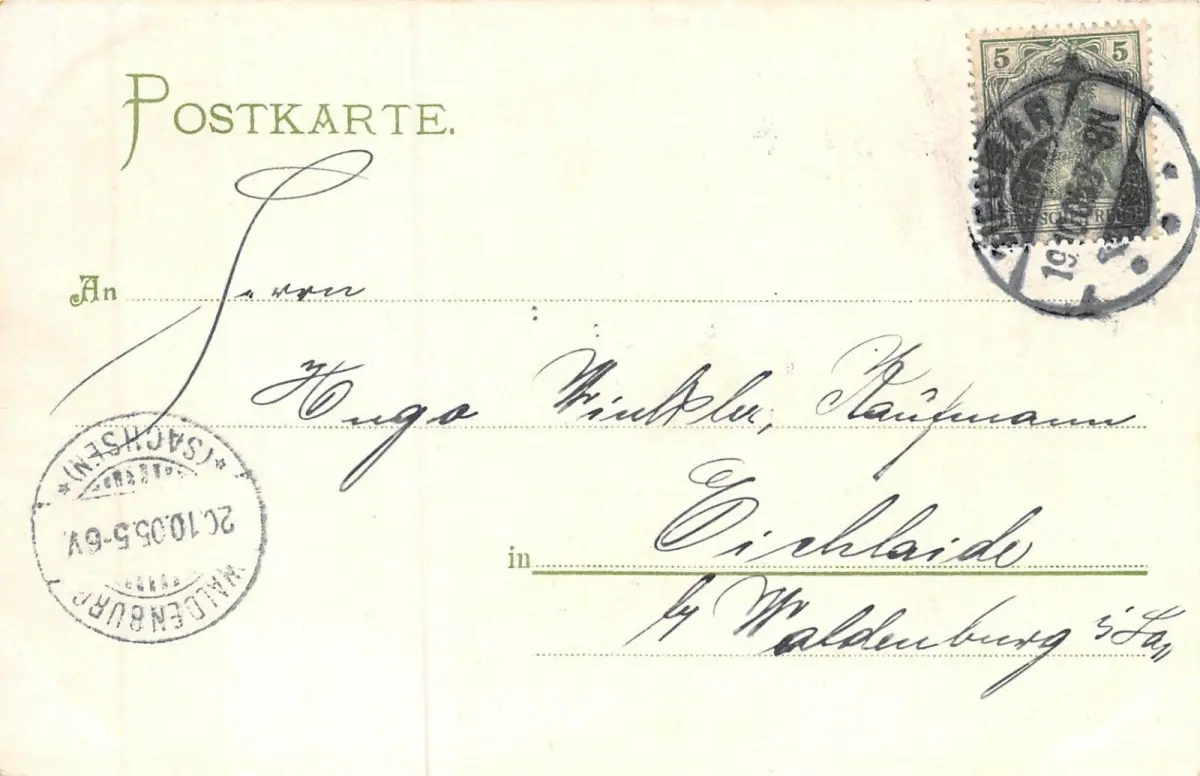 POSTKARTE.
5 5
DEUTSCHES REICH
19.10.05 8-9N
An Herrn
Hugo Winkler, Kaufmann
in Eichlaide
by Waldenburg i/Sa.
WALDENBURG
20.10.05.5-6V.
*(SACHSEN)*